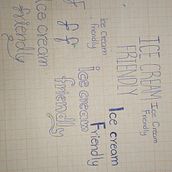 Ice cream
friendly
f f f
Ice cream
friendly
Ice cream
friendly
ICE CREAM
FRIENDLY
Ice Cream
Friendly
Ice cream
Friendly